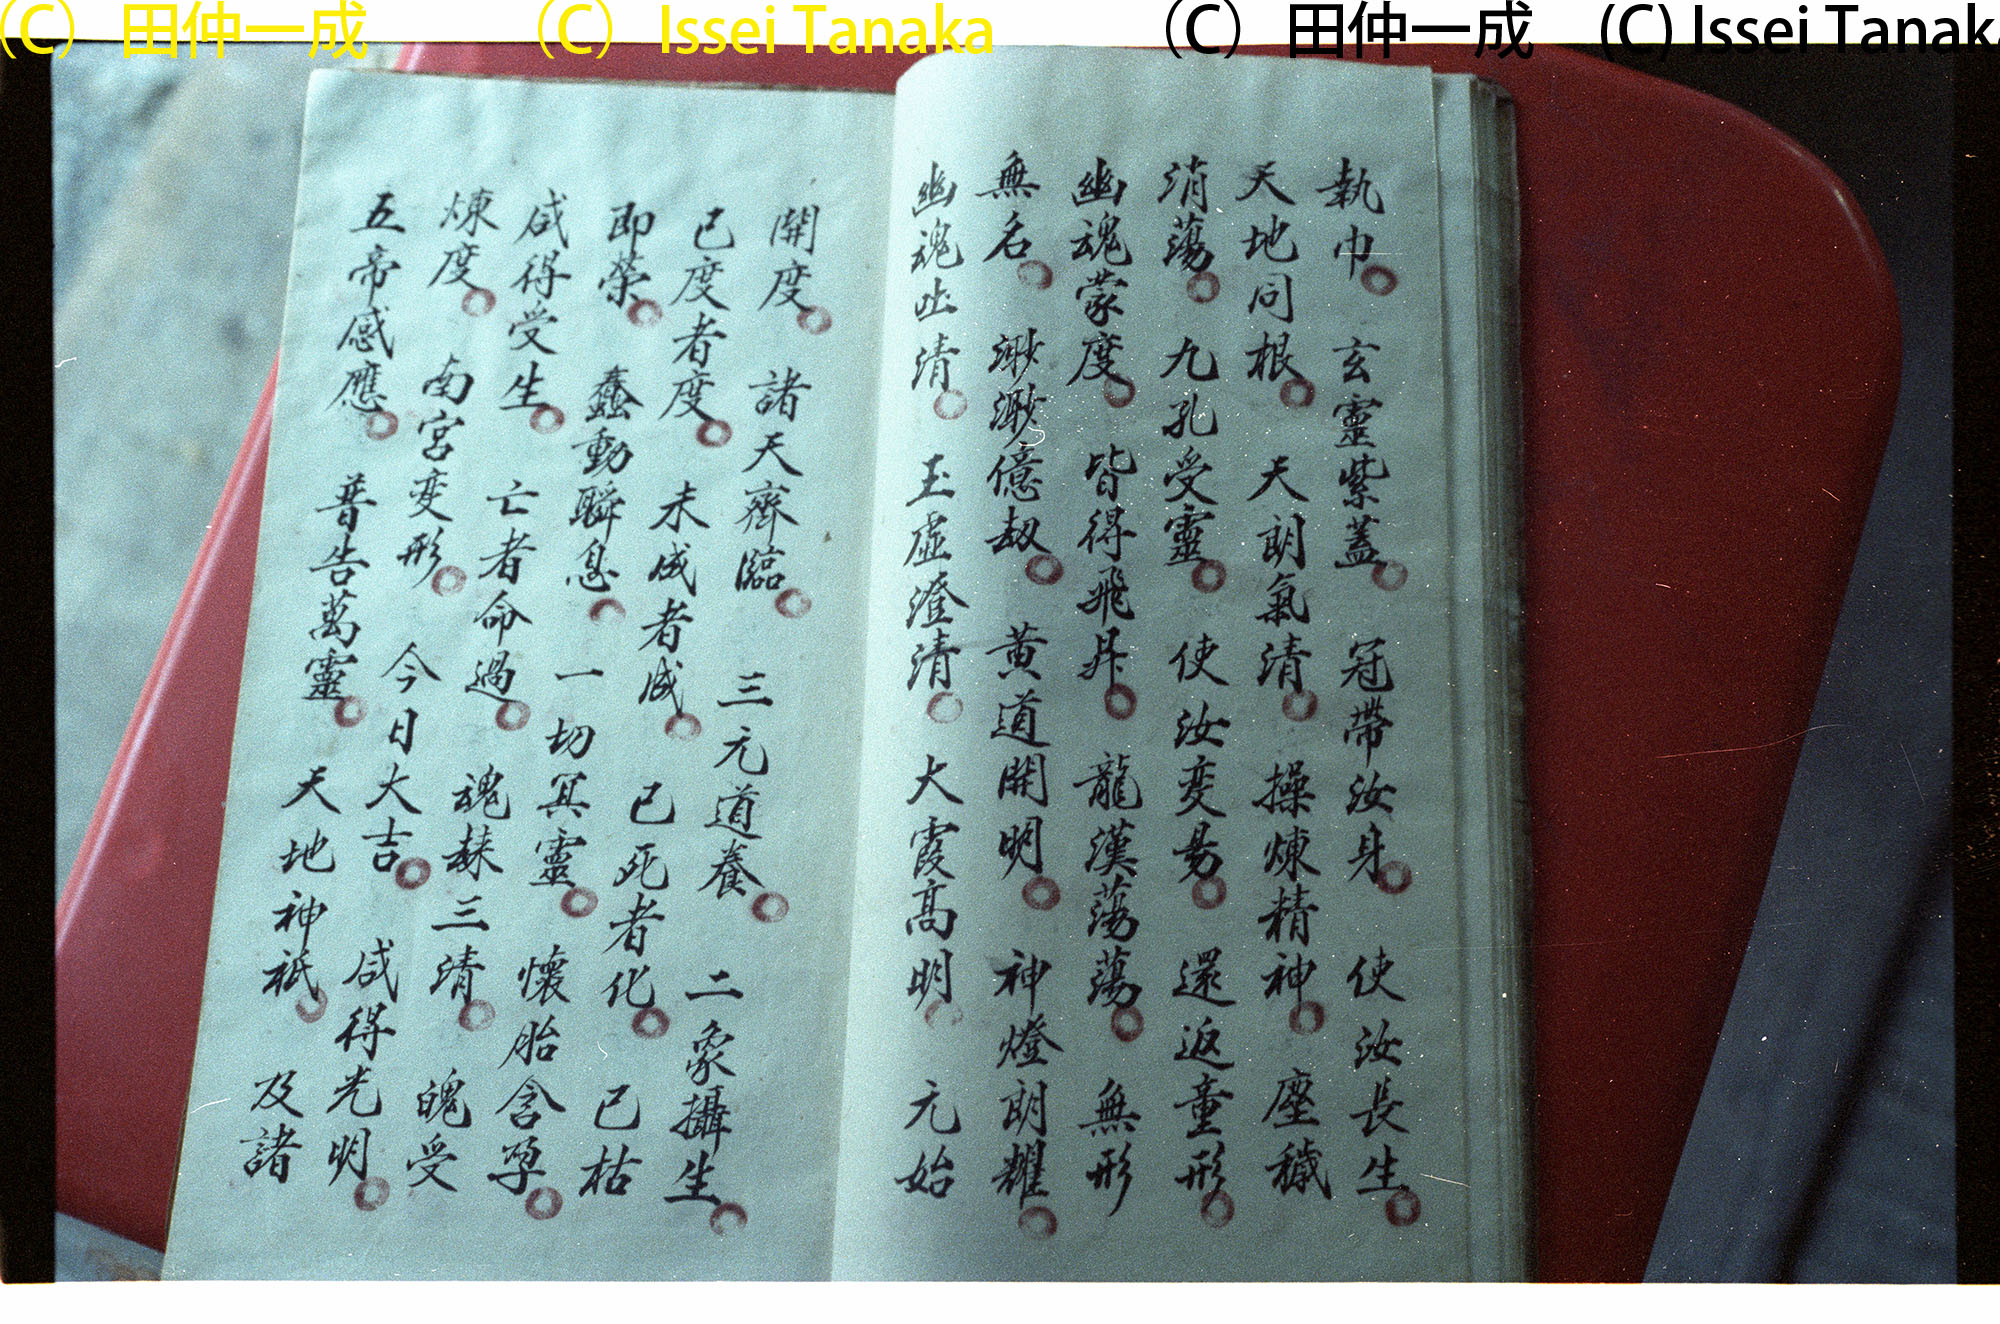 (C) 田仲一成 (C) Issei Tanaka (C) 田仲一成 (C) Issei Tanaka
執巾 玄靈紫蓋 冠帶汝身 使汝長生
天地同根 天朗氣清 操煉精神 塵穢
消蕩 九孔受靈 使汝变易 還返童形
幽魂蒙度 皆得飛昇 龍漢蕩蕩 無形
無名 渺渺億劫 黄道開明 神燈朗耀
幽魂吐清 玉虛澄清 大霞高明 元始
開度 諸天齊臨 三元道養 二象攝生
已度者度 未成者成 已死者化 已枯
即榮 蠢動瞬息 一切冥靈 懷胎含孕
咸得受生 亡者命過 魂 三清 魄受
煉度 南宮变形 今日大吉 咸得光明
五帝感應 普告萬靈 天地神祇 及諸